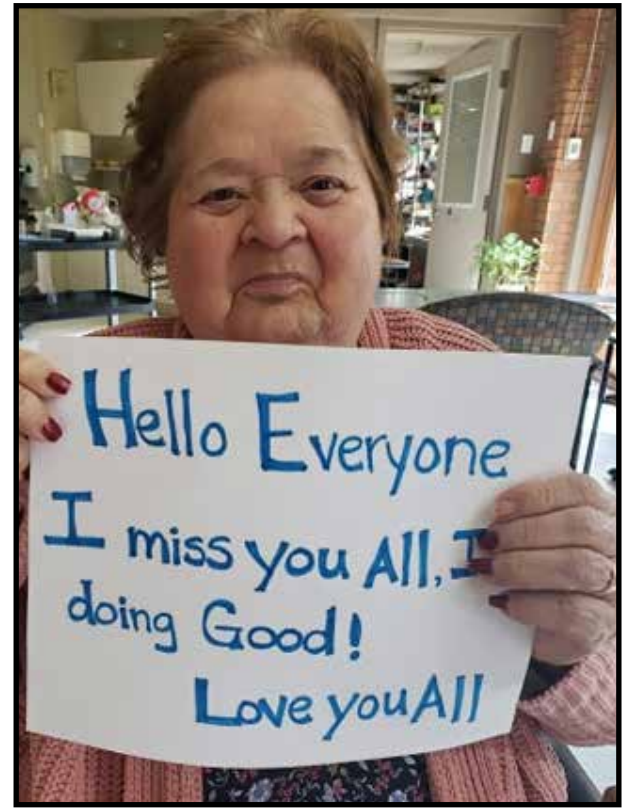 Hello Everyone
I miss you All, I
doing Good!
Love you All